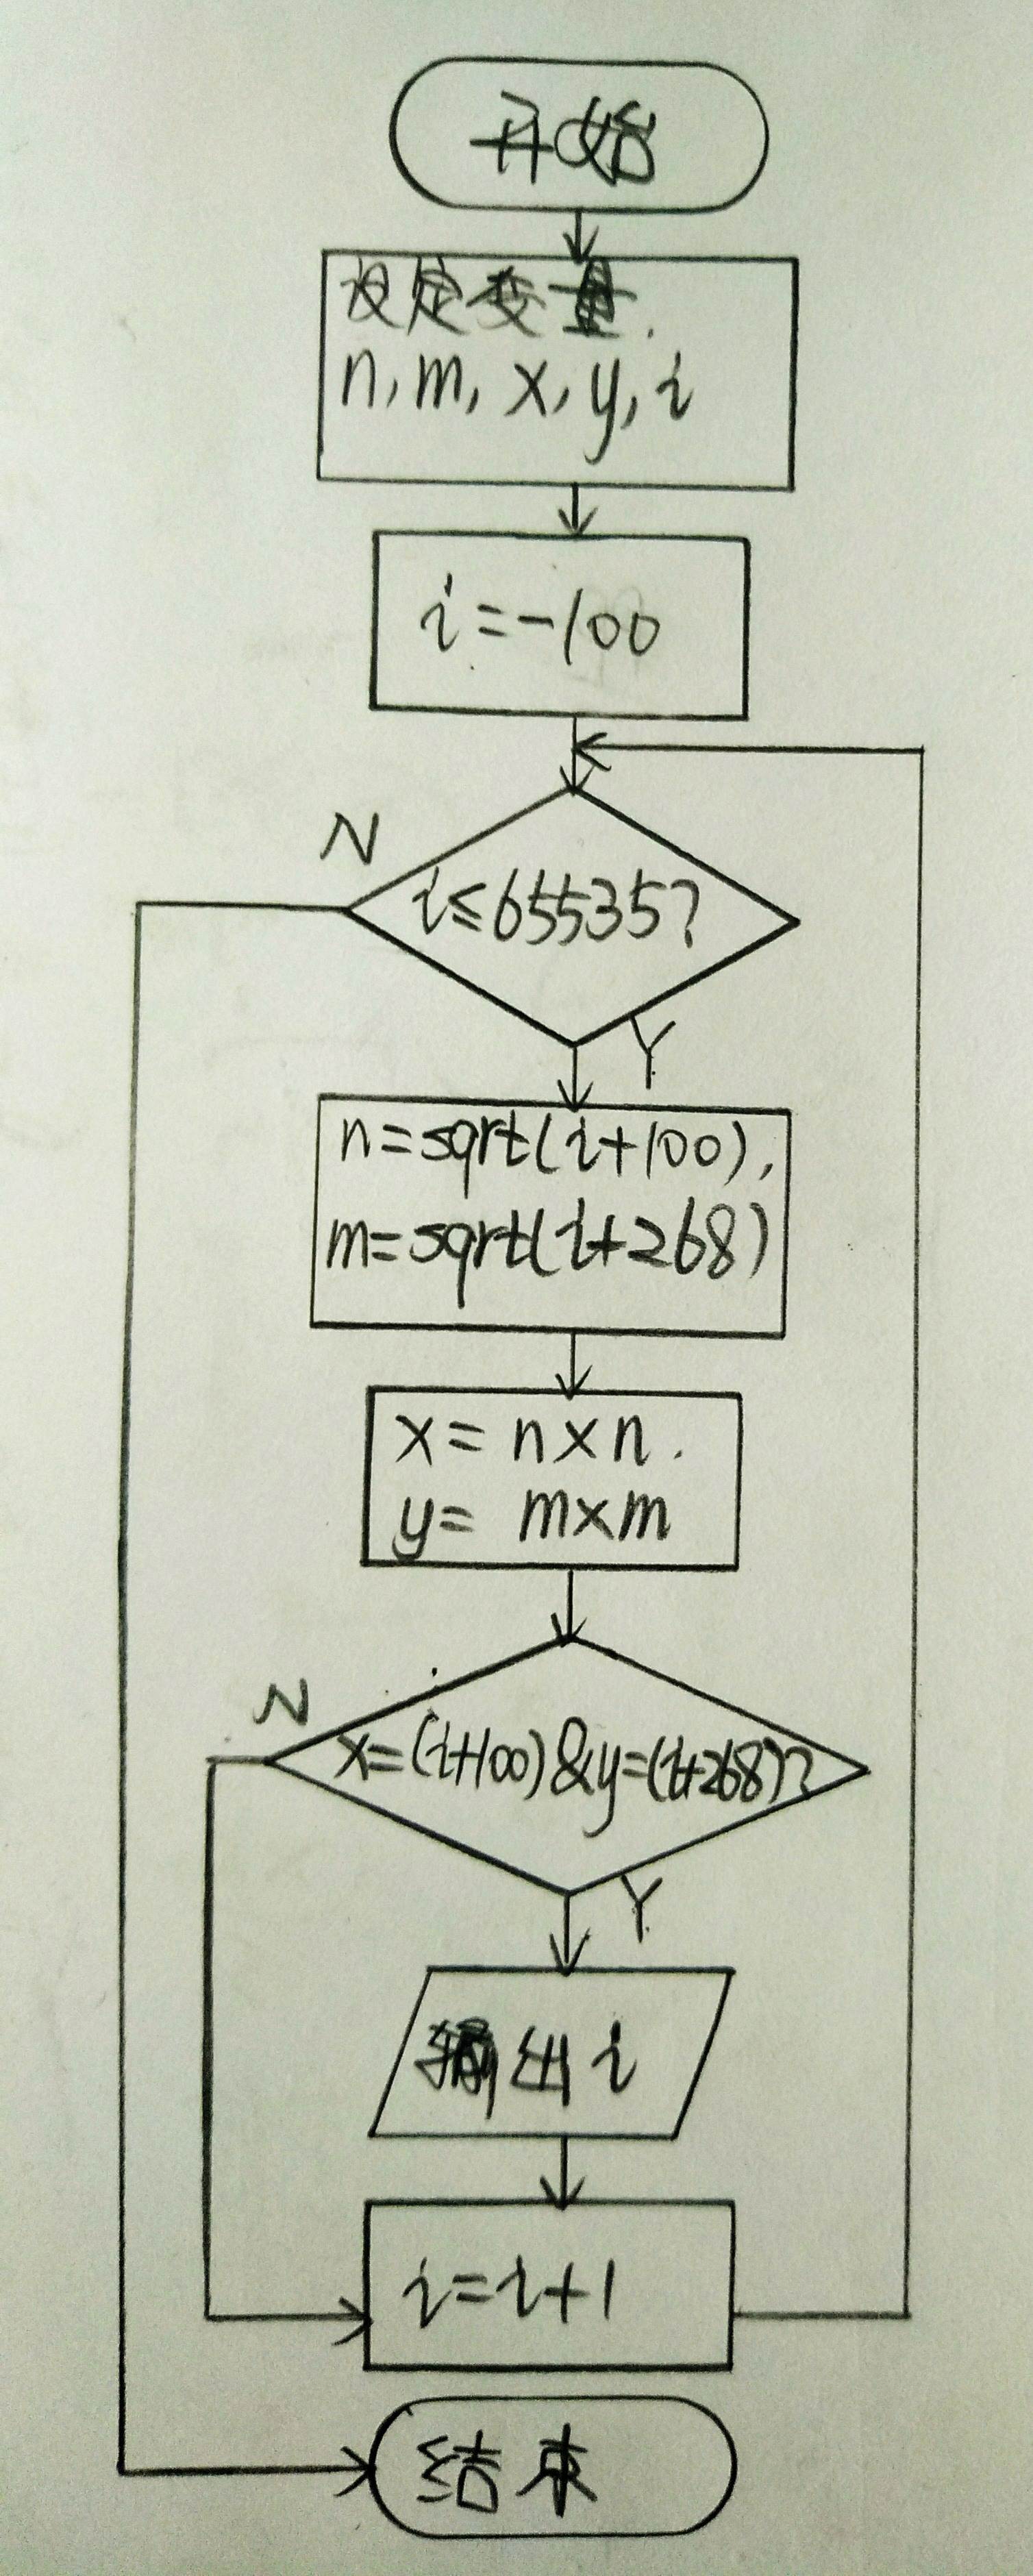 开始
设定变量.
n, m, x, y, i
i=-100
N
i≤65535?
Y
n=sqrt(i+100),
m=sqrt(i+268)
x= n×n.
y= m×m
N
x=(i+100)&y=(i+268)?
Y
输出 i
i=i+1
结束